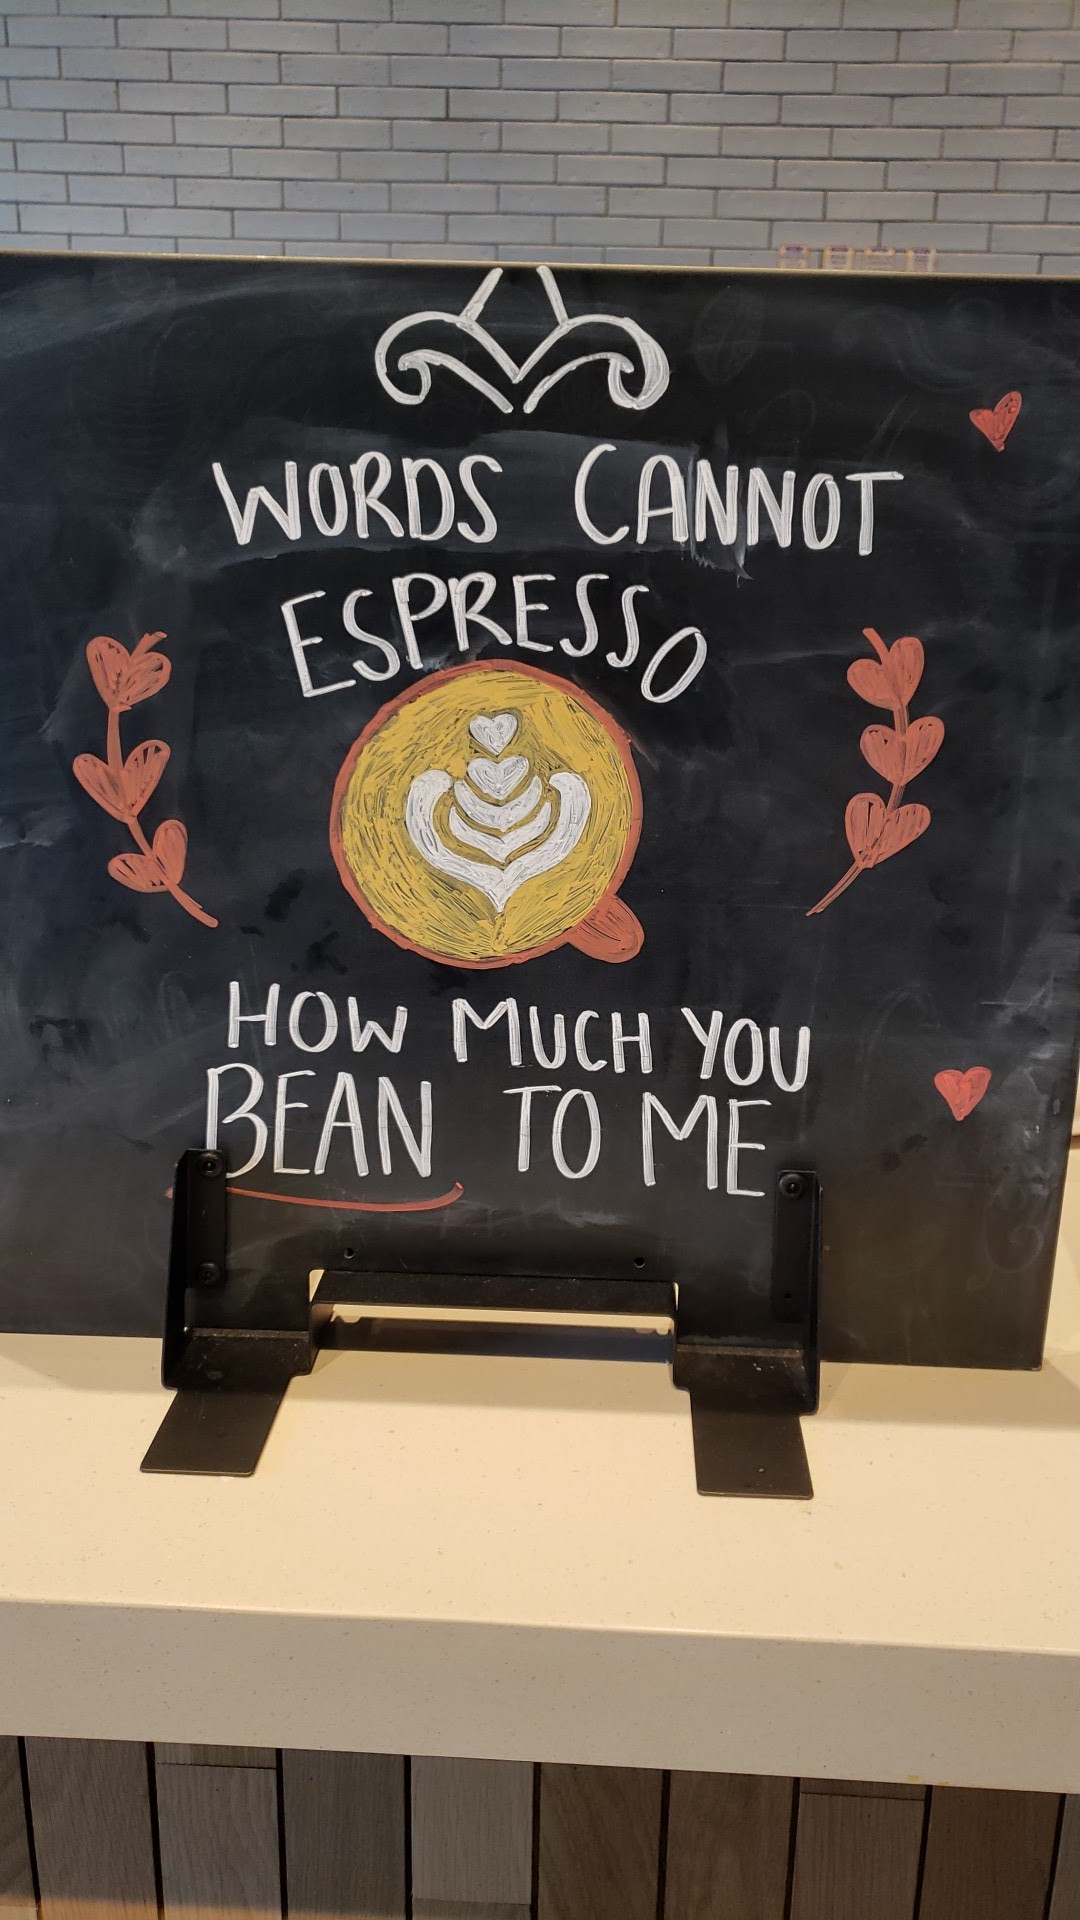 WORDS CANNOT
ESPRESSO
HOW MUCH YOU
BEAN TO ME